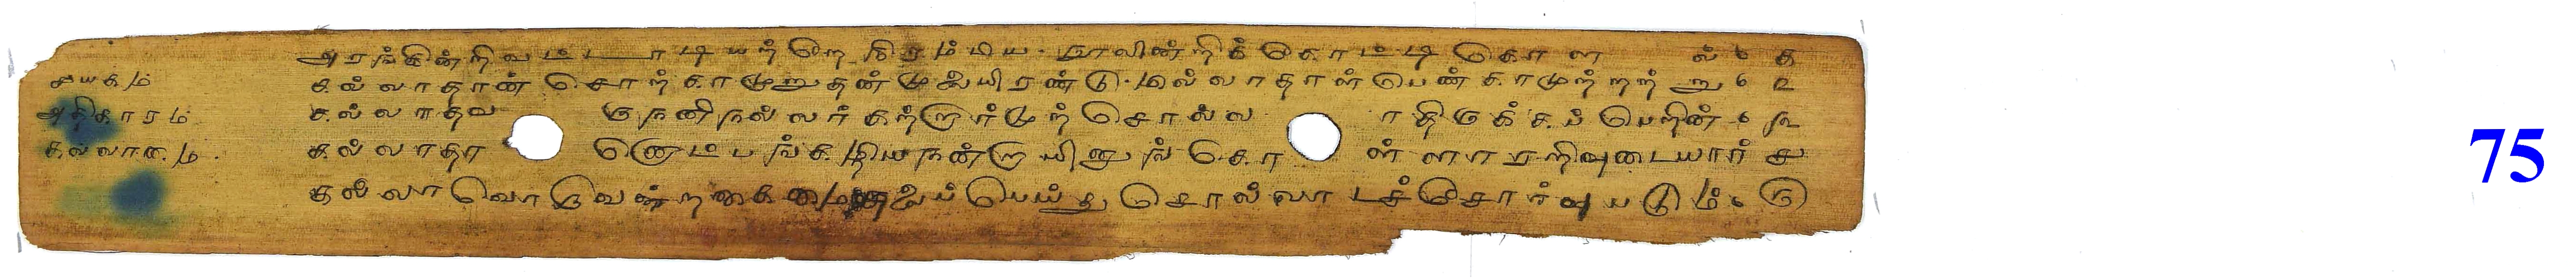 அரங்கின்றிவட்டாடியற்றே நிரம்பிய நூலின்றிக்கோட்டி கொளல் ௧
௪யகம் கல்லாதான் சொற்காமுறுதன் முலையிரண்டு மில்லாதாள் பெண்காமுற்றற்று ௨
அதிகாரம் கல்லாதவரு நனிநல்லர் கற்றார்முற் சொல்லாதிருக்கப் பெறின் ௩
கல்லாமை கல்லாதானொட்பங் கழியநன்றாயினுங் கொள்ளாரறிவுடையார் ௪
கல்லாவொருவன்றகைமை தலைப்பெய்து சொல்லாடச்சோர்வுபடும் ௫
75